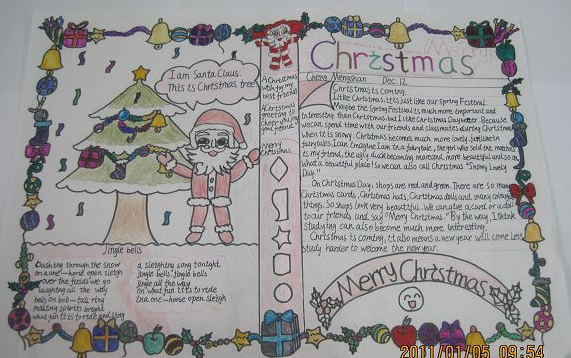 I am Santa Claus.
This is Christmas tree!
Jingle bells
Dashing through the snow
on a one-horse open sleigh
over the fields we go
laughing all the way
bells on bob-tail ring
making spirits bright
what fun it is to ride and sing
a sleighing song tonight
jingle bells, jingle bells
jingle all the way
oh what fun it is to ride
in a one-horse open sleigh
A Christmas
wish for my
best friend!
A Christmas
greeting to
cheer you my
good friend
Merry
Christmas
Merry
Christmas
Cheng Mengshan Dec. 12
Christmas is coming.
I like Christmas. It is just like our Spring Festival.
Maybe the Spring Festival is much more important and
interesting than Christmas but I like Christmas Day better. Because
we can spend time with our friends and classmates during Christmas
when it is snowy. Christmas becomes much more lovely, just like in
fairytales. I can imagine I am in a fairytale, the girl who sold the matches
is my friend, the ugly duck becoming more and more beautiful and so on
what a beautiful place! So we can also call Christmas "Snowy Lovely
Day."
On Christmas Day, shops are red and green. There are so many
Christmas cards, Christmas hats, Christmas dolls and many colour
things. So shops look very beautiful. We can give a card or a doll
to our friends and say "Merry Christmas." By the way, I think
studying can also become much more interesting.
Christmas is coming, it also means a new year will come. Lets
study harder to welcome the new year.
Merry Christmas
2011/01/05 09:54